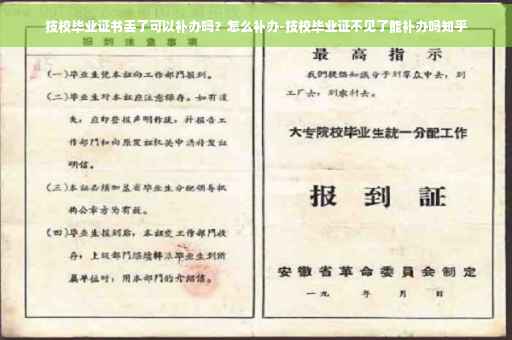 技校毕业证书丢了可以补办吗?怎么补办-技校毕业证不见了能补办吗知乎
报到注意事项
(一)毕业生凭本证向工作部门报到。
(二)毕业生对本证应注意保存。如有遗
失,应即登报声明作废,并报告工
作部门和向原发证机关申请补发证
明信。
(三)本证必须加盖省毕业生分配领导机
构公章方为有效。
(四)毕业生报到后,本证交工作部门收
存;上级部门继续转派毕业生到所
属单位时,用本部门的介绍信。
最高指示
我们提倡知识分子到群众中去,到
工厂去,到农村去。
大专院校毕业生统一分配工作
报到証
安徽省革命委員会制定
一九 年 月 日